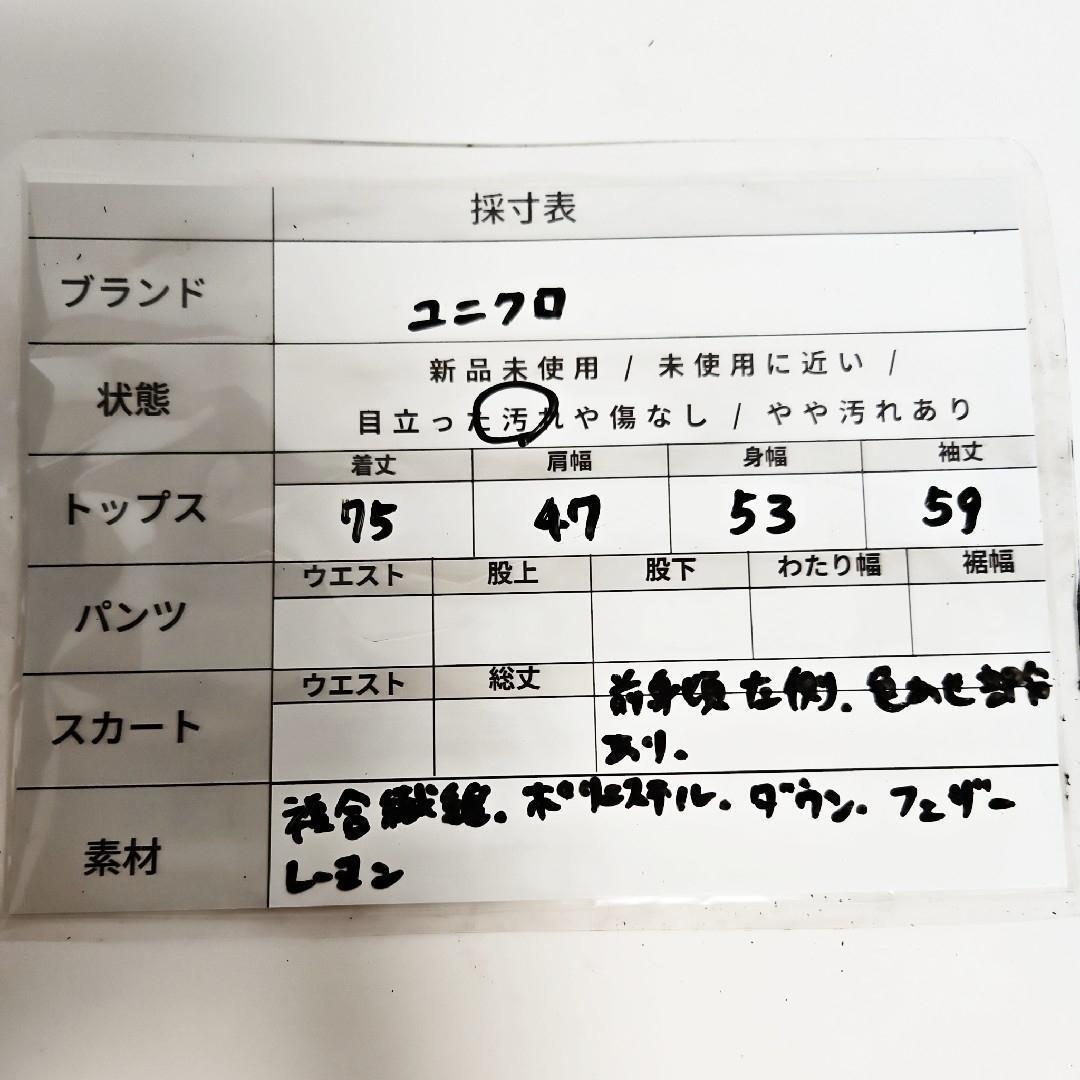 採寸表
ブランド
ユニクロ
状態
新品未使用 / 未使用に近い /
目立った汚れや傷なし / やや汚れあり
トップス
着丈 肩幅 身幅 袖丈
75 47 53 59
パンツ
ウエスト 股上 股下 わたり幅 裾幅
スカート
ウエスト 総丈
前身頃左側。色あせ部分
あり。
素材
複合繊維。ポリエステル。ダウン。フェザー
レーヨン